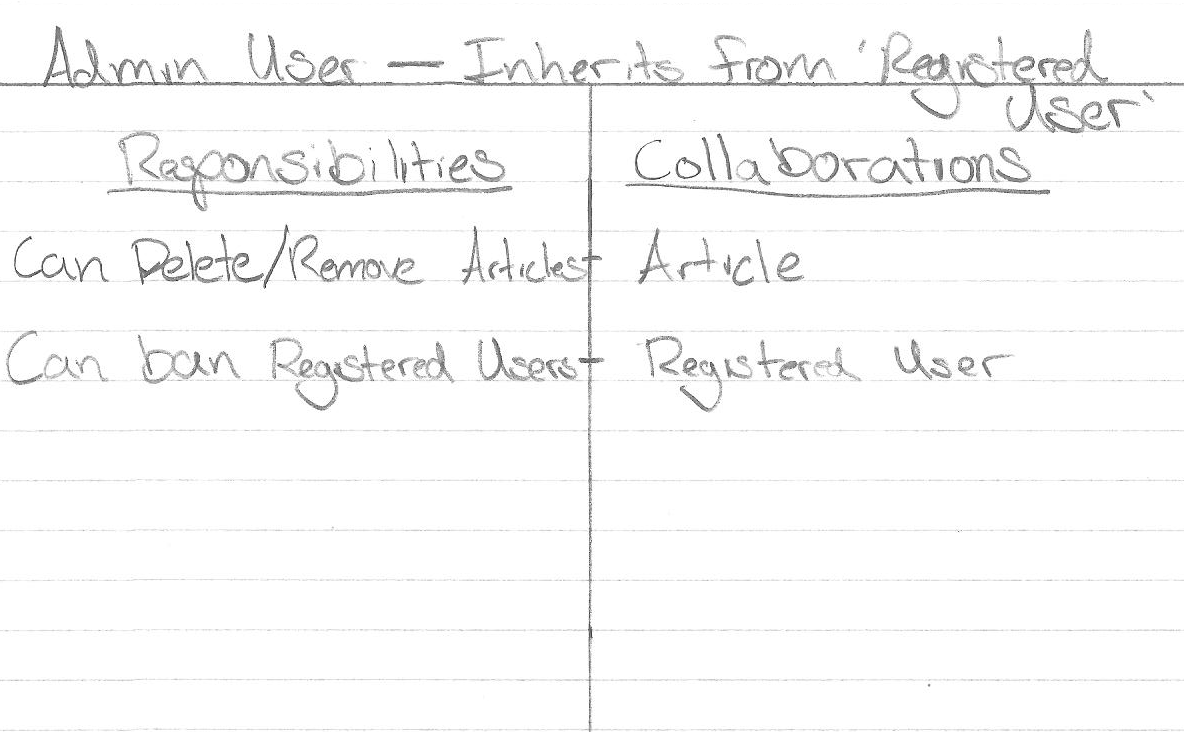 Admin User — Inherits from 'Registered
User'
Responsibilities Collaborations
Can Delete/Remove Articles - Article
Can ban Registered Users - Registered User